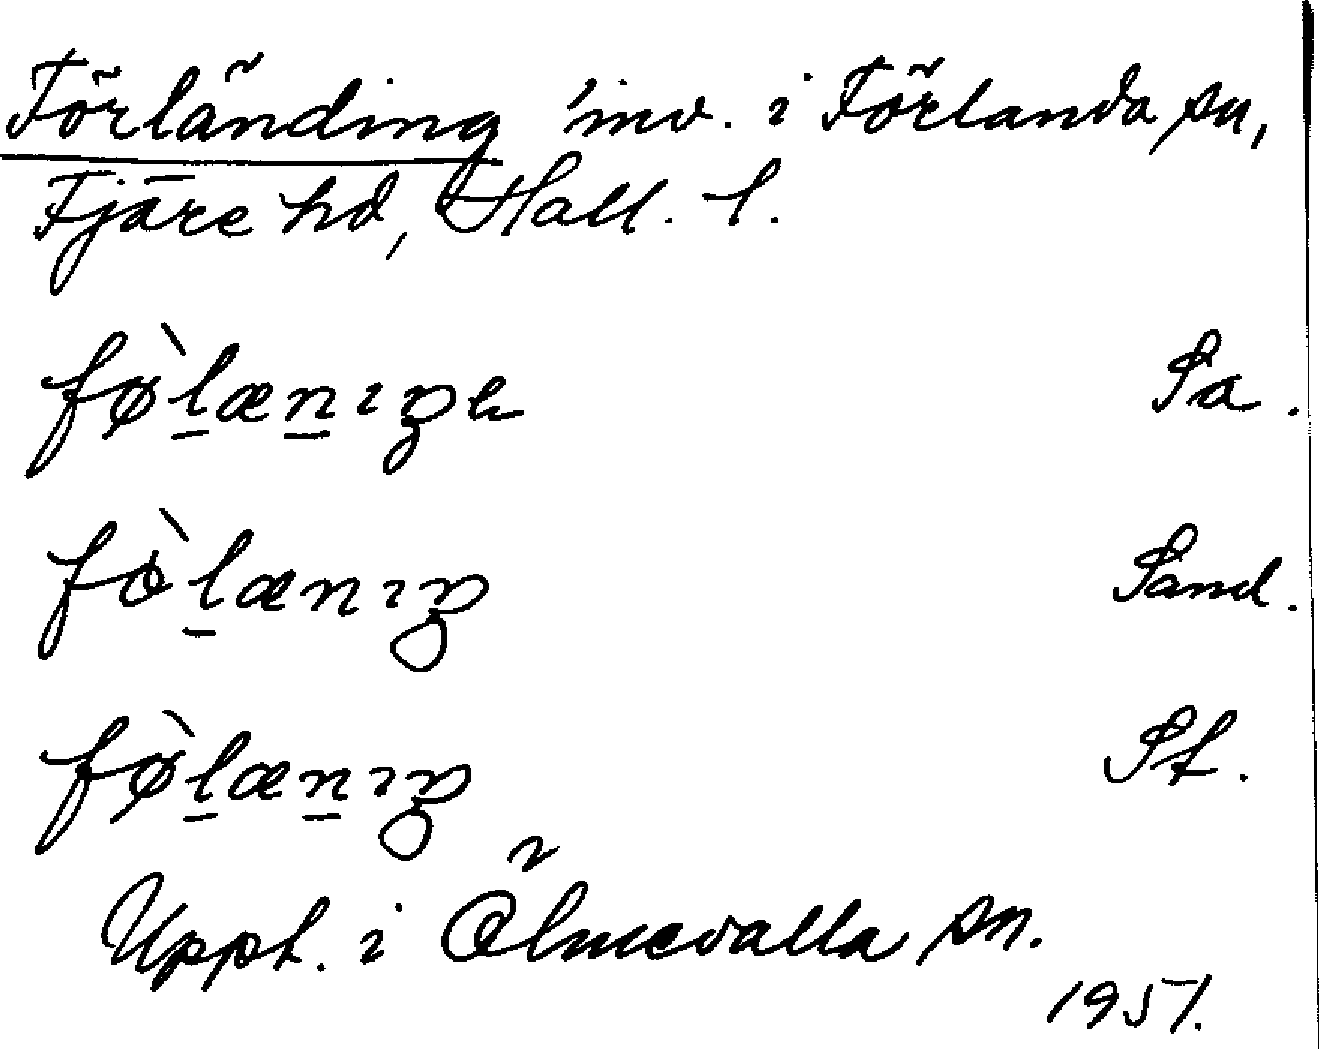 Förländing 'inv. i Förlanda sn,
Fjäre hd, Hall. l.
fø̀l̠æn̠ıŋk Sa.
fòl̠ænıŋ Sand.
fø̀l̠æn̠ıŋ St.
Uppt. i Ölmevalla sn.
1951.